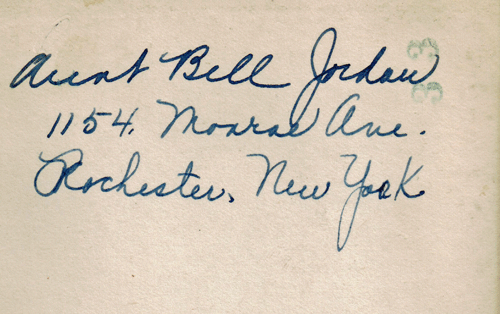 Aunt Bell Jordan
33
1154. Monroe Ave.
Rochester, New York